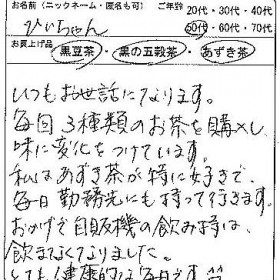 お名前（ニックネーム・匿名も可） ご年齢 20代・30代・40代
ひぃちゃん 50代・60代・70代
お買上げ品 黒豆茶・黒の五穀茶・あずき茶
いつもお世話になります。
毎回3種類のお茶を購入し
味に変化をつけています。
私はあずき茶が特に好きで、
毎日勤務先にも持って行きます。
おかげで自販機の飲み物は
飲まなくなりました。
とても健康的な毎日です^^